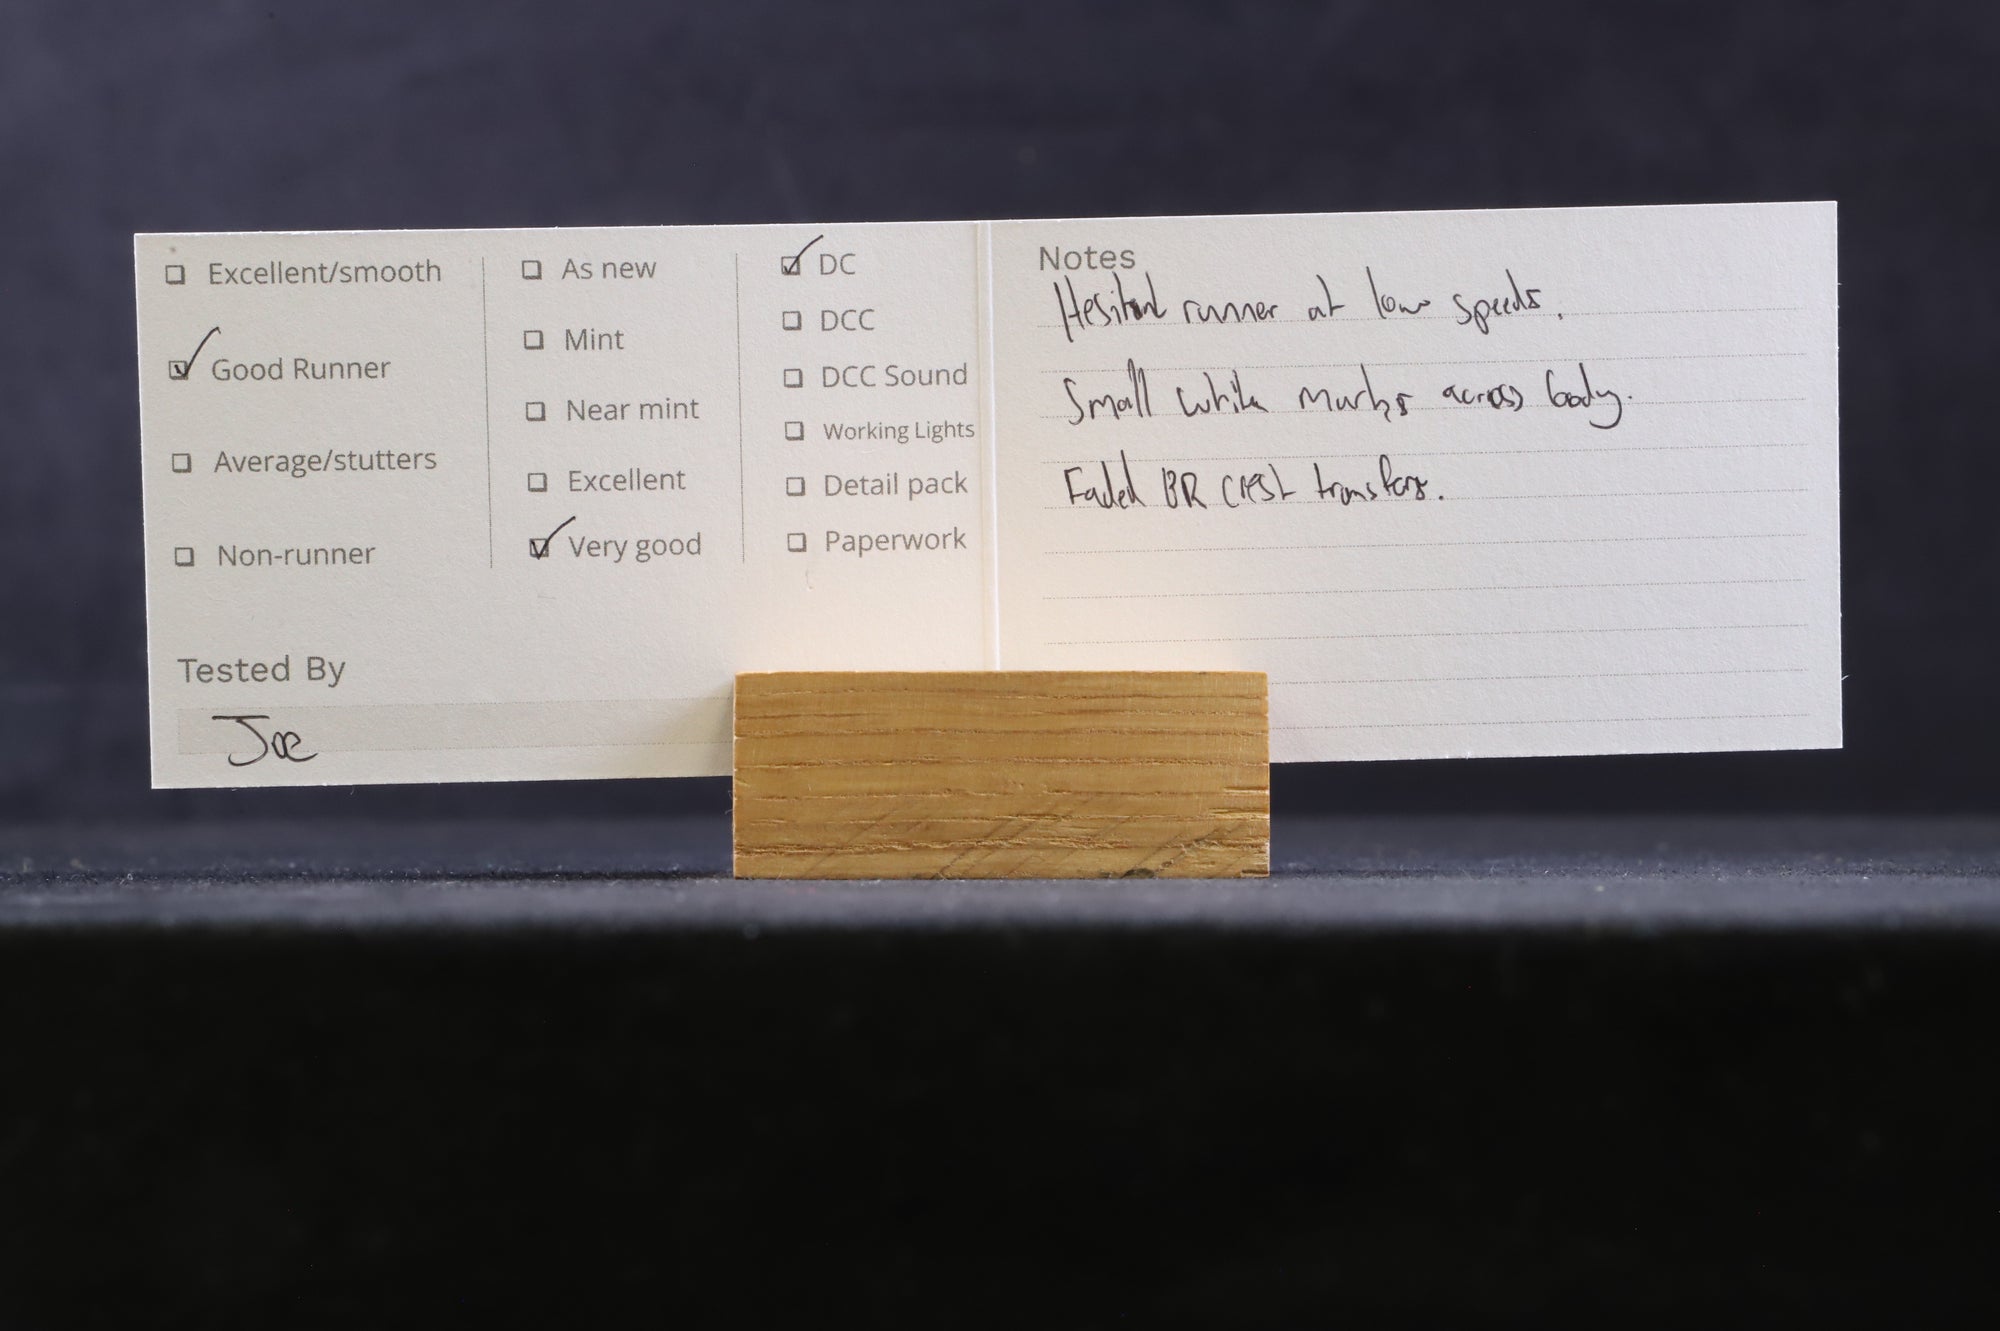 Excellent/smooth
Good Runner
Average/stutters
Non-runner
As new
Mint
Near mint
Excellent
Very good
DC
DCC
DCC Sound
Working Lights
Detail pack
Paperwork
Tested By
Joe
Notes
Hesitant runner at low speeds.
Small white marks across body.
Faded BR crest transfers.